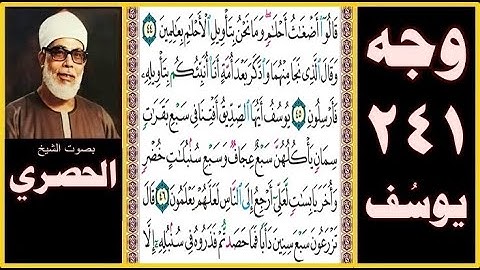 وجه
٢٤١
يوسف
قَالُوٓا۟ أَضْغَٰثُ أَحْلَٰمٍ وَمَا نَحْنُ بِتَأْوِيلِ ٱلْأَحْلَٰمِ بِعَٰلِمِينَ ٤٤
وَقَالَ ٱلَّذِى نَجَا مِنْهُمَا وَٱدَّكَرَ بَعْدَ أُمَّةٍ أَنَا۠ أُنَبِّئُكُم بِتَأْوِيلِهِۦ
فَأَرْسِلُونِ ٤٥ يُوسُفُ أَيُّهَا ٱلصِّدِّيقُ أَفْتِنَا فِى سَبْعِ بَقَرَٰتٍ
سِمَانٍ يَأْكُلُهُنَّ سَبْعٌ عِجَافٌ وَسَبْعِ سُنۢبُلَٰتٍ خُضْرٍ
وَأُخَرَ يَابِسَٰتٍ لَّعَلِّىٓ أَرْجِعُ إِلَى ٱلنَّاسِ لَعَلَّهُمْ يَعْلَمُونَ ٤٦ قَالَ
تَزْرَعُونَ سَبْعَ سِنِينَ دَأَبًا فَمَا حَصَدتُّمْ فَذَرُوهُ فِى سُنۢبُلِهِۦٓ إِلَّا
بصوت الشيخ
الحصري